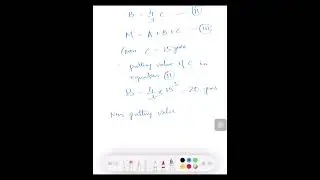 B = 4/3 C — II
M = A + B + C — III
Given C = 15 gms
putting value of C in
equation II
B = 4/3 × 15 5 = 20 gms
Now putting value